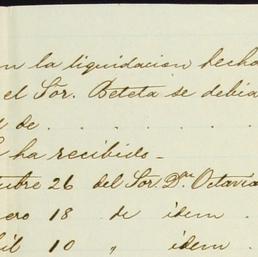 n la liquidacion hecha
el Sor. Beteta se debia
de . . . . .
ha recibido_
ubre 26 del Sor. Dn. Octavia
ero 18 de idem .
il 10 " idem .